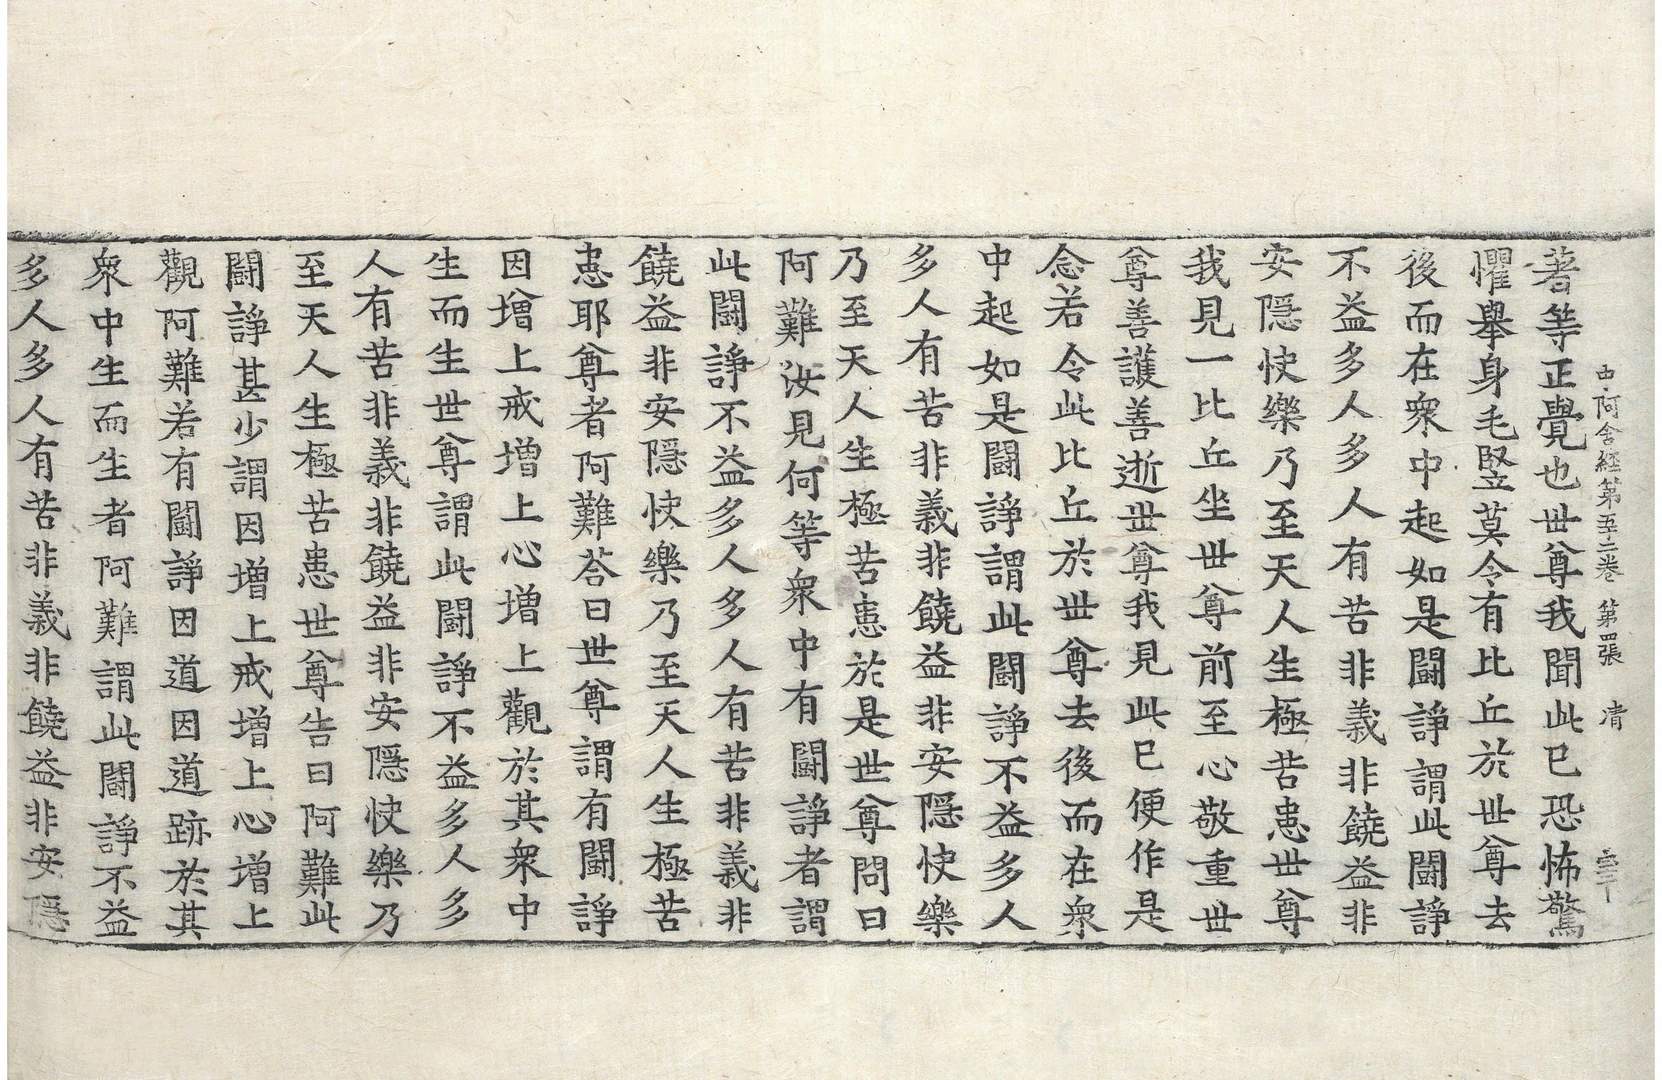 中阿含經第五二卷 第四張 清
著等正覺也世尊我聞此已恐怖驚
懼舉身毛竪莫令有比丘於世尊去
後而在衆中起如是鬪諍謂此鬪諍
不益多人多人有苦非義非饒益非
安隱快樂乃至天人生極苦患世尊
我見一比丘坐世尊前至心敬重世
尊善護善逝世尊我見此已便作是
念若令此比丘於世尊去後而在衆
中起如是鬪諍謂此鬪諍不益多人
多人有苦非義非饒益非安隱快樂
乃至天人生極苦患於是世尊問曰
阿難汝見何等衆中有鬪諍者謂
此鬪諍不益多人多人有苦非義非
饒益非安隱快樂乃至天人生極苦
患耶尊者阿難荅曰世尊謂有鬪諍
因增上戒增上心增上觀於其衆中
生而生世尊謂此鬪諍不益多人多
人有苦非義非饒益非安隱快樂乃
至天人生極苦患世尊告曰阿難此
鬪諍甚少謂因增上戒增上心增上
觀阿難若有鬪諍因道因道跡於其
衆中生而生者阿難謂此鬪諍不益
多人多人有苦非義非饒益非安隱